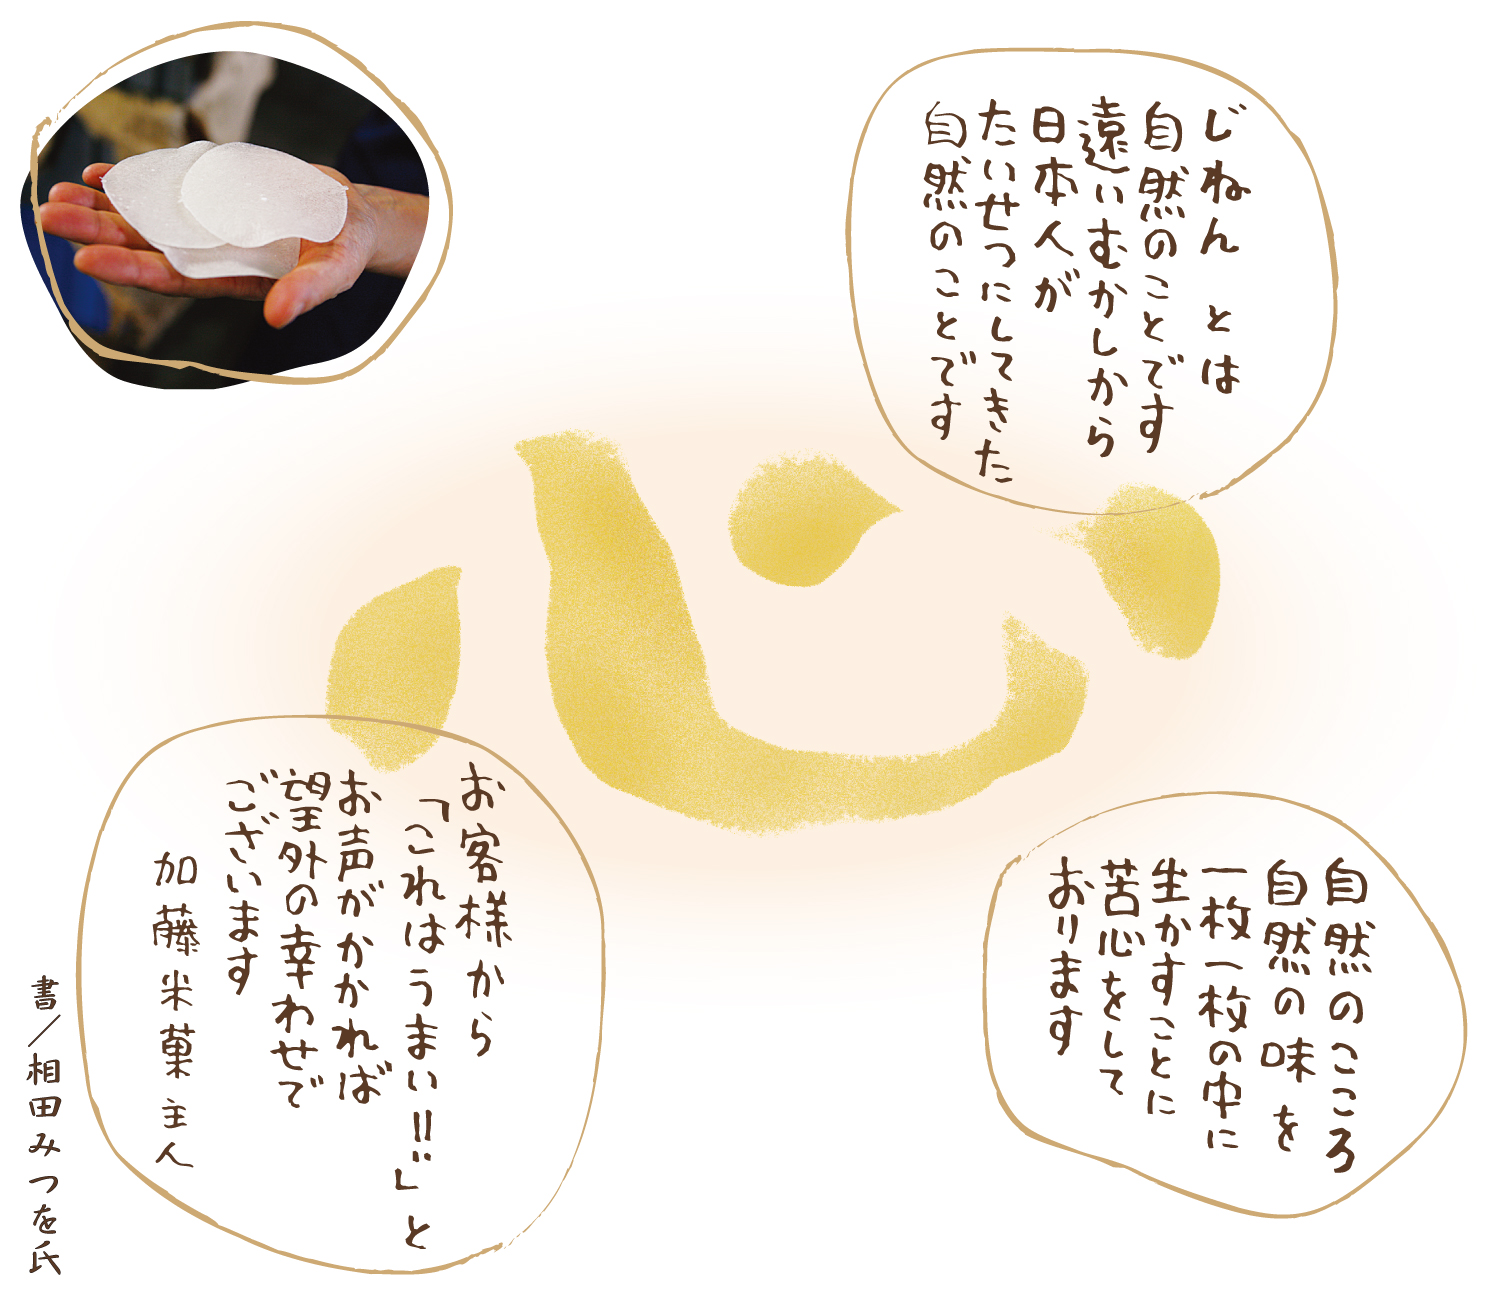 じねん とは
自然のことです
遠いむかしから
日本人が
たいせつにしてきた
自然のことです
心
自然のこころ
自然の味を
一枚一枚の中に
生かすことに
苦心をして
おります
お客様から
「これはうまい!!」と
お声がかかれば
望外の幸わせで
ございます
加藤米菓 主人
書/相田みつを氏